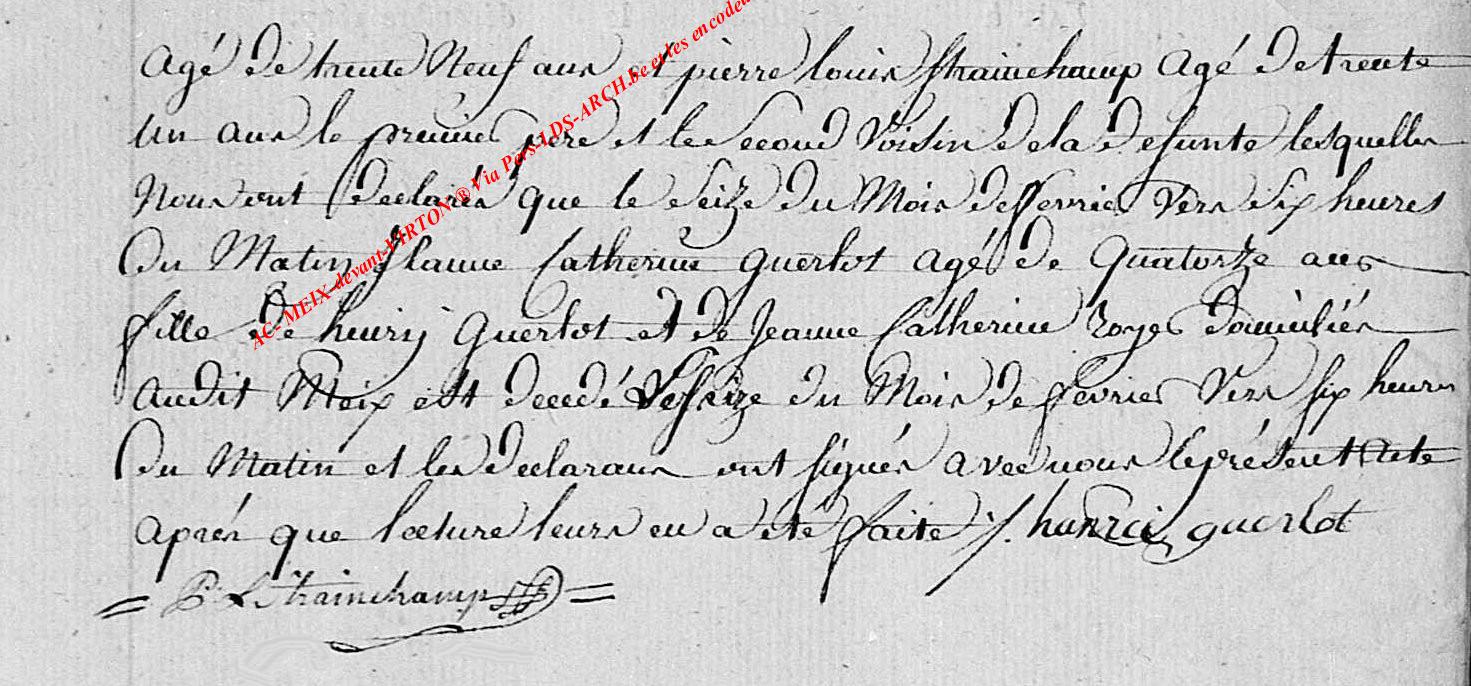 agé de trente Neuf ans et pierre louis Strainchamp agé de trente
un ans le premier pere et le Second Voisin de la defunte lesquelles
Nous ont declarés que le Seize du Mois de fevrier Vers Six heures
Du Matin Catherine Guerlot agé de Quatorze ans
fille de henry Guerlot et de Jeanne Catherine Royer domiciliés
audit Meix est decedé le Seize du Mois de fevrier Vers six heures
Du Matin et les declarans ont signés avec nous le présent acte
après que lecture leurs en a été faite ./. Guerlot
P L Strainchamp
AC-MEIX-devant-VIRTON ® Via Pers-LDS-ARCH.be et les encodeu